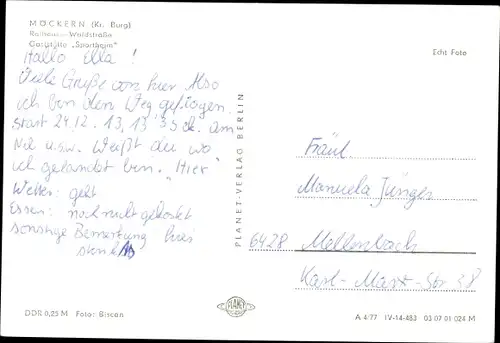 MÖCKERN (Kr. Burg)
Rathaus - Waldstraße
Gaststätte „Sportheim"
Hallo Ella!
Viele Grüße von hier. Also
ich bin den Weg geflogen.
Start 24.12. 13.13 am
Nil u.s.w. Weißt du wo
ich gelandet bin. "Hier"
Wetter: geht
Essen: noch nicht gekostet
sonstige Bemerkung
PLANET-VERLAG BERLIN
Echt Foto
Fräul.
Manuela Jünger
6428 Mellenbach
Karl-Marx-Str 38
DDR 0,25 M Foto: Biscan
PLANET
A 4/77 IV-14-483 03 07 01 024 M